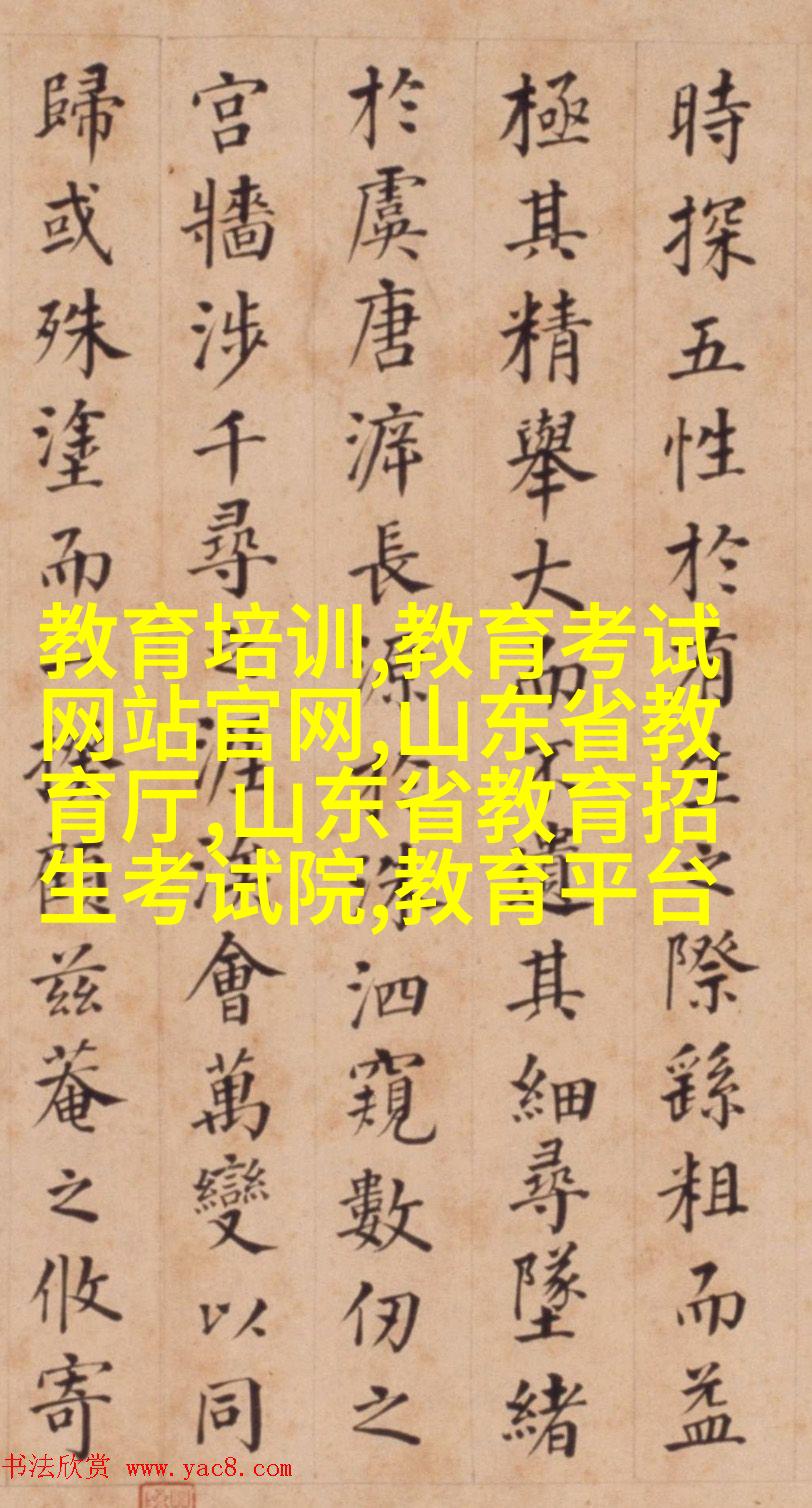 時探五性於有生之際繇粗而益
極其精舉大而不遺其細尋墜緒
於虞唐泝長源於洙泗窺數仞之
宮牆涉千尋之涯涘會萬變以同
歸或殊塗而一揆顧茲菴之攸寄
教育培训,教育考试
网站官网,山东省教
育厅,山东省教育招
生考试院,教育平台
书法欣赏 www.yac8.com